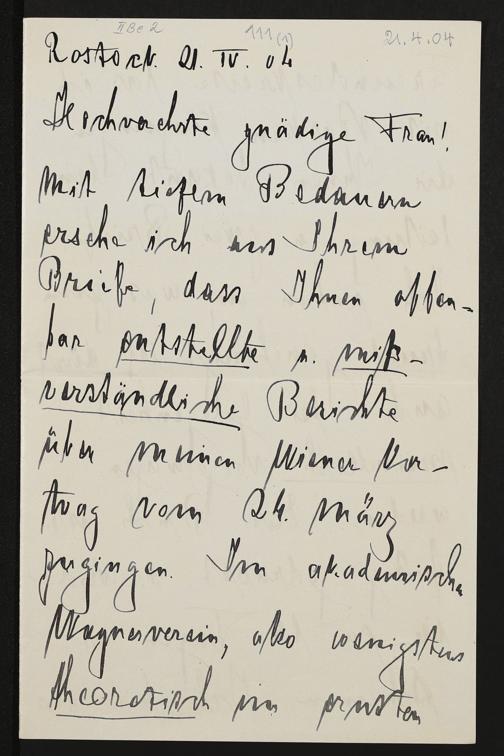 II Be 2
111 (1)
21.4.04
Rostock. 21. IV. 04
Hochverehrte gnädige Frau!
Mit tiefem Bedauern
ersehe ich aus Ihrem
Briefe, dass Ihnen offen-
bar entstellte u. miß-
verständliche Berichte
über meinen Wiener Vor-
trag vom 24. März
zugingen. Im akademischen
Wagnerverein, also wenigstens
theoretisch im ernsten